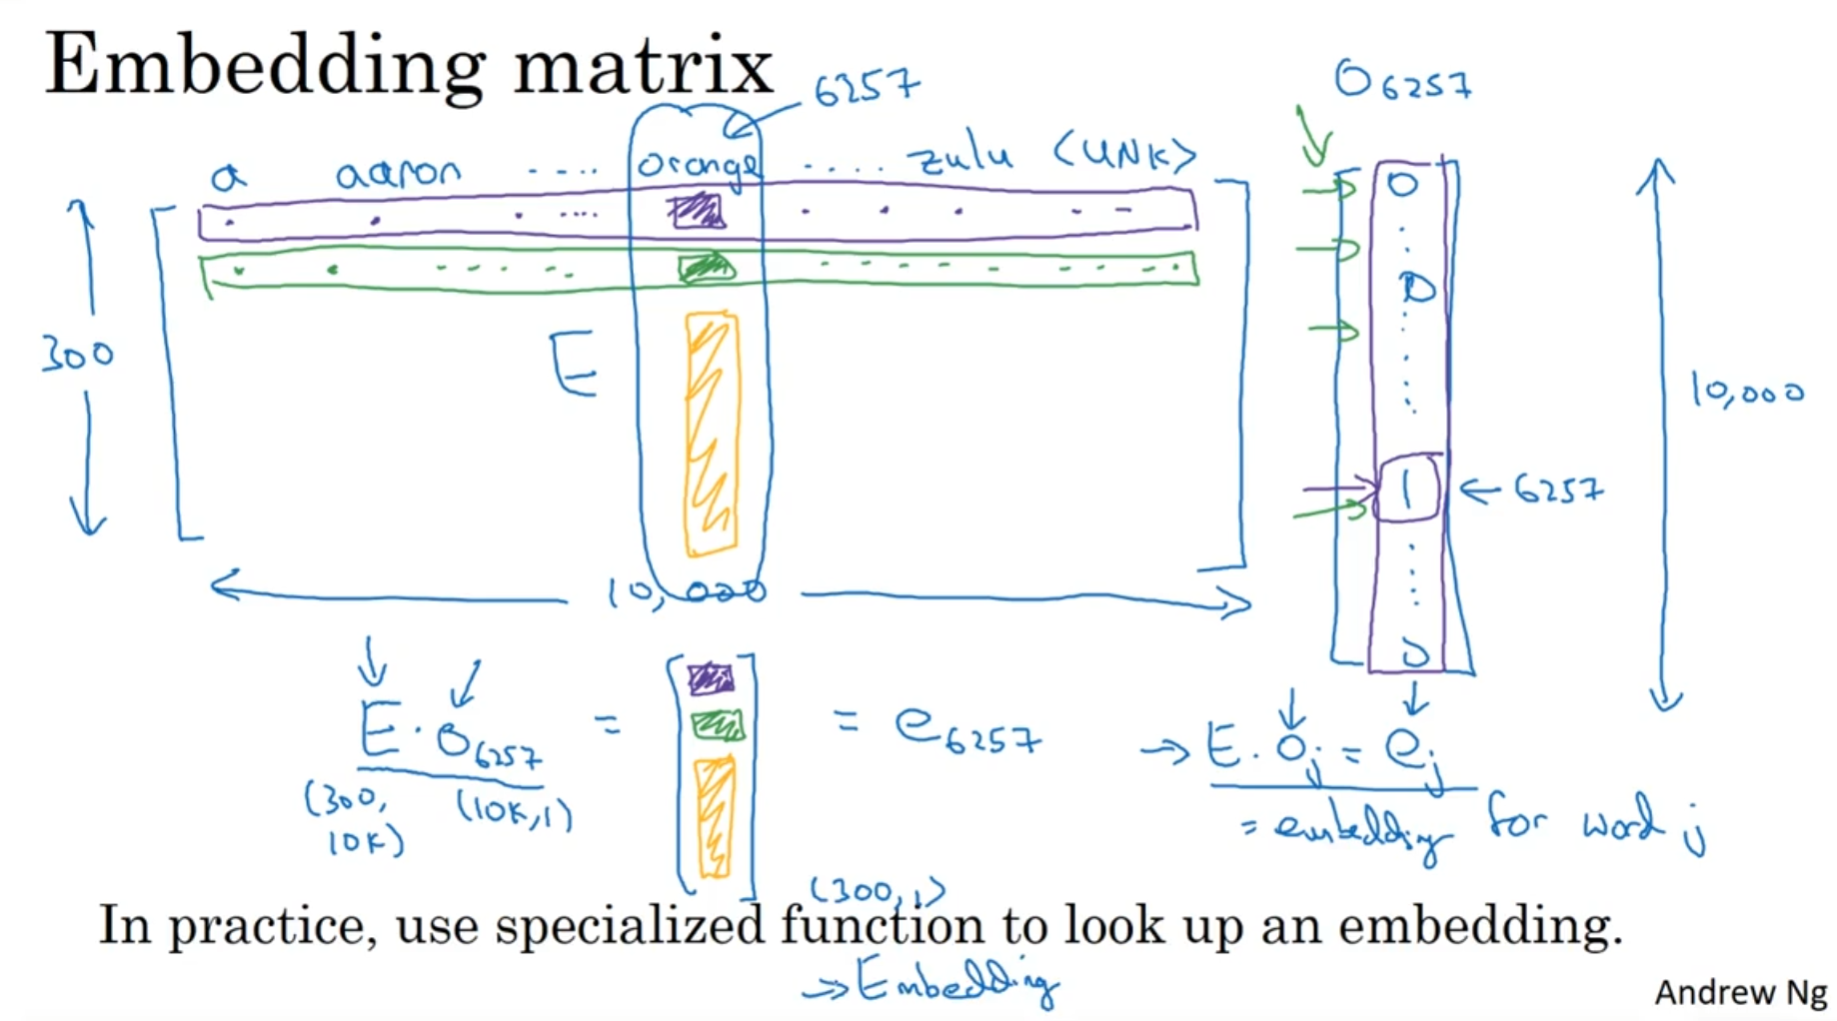 Embedding matrix
6257
O6257
a aaron ..... orange ..... zulu <UNK>
0
0
300
E
10,000
1 ← 6257
10,000
0
E · o6257 = [ ] = e6257
(300, 10K) (10K,1)
(300,1)
→ E · oj = ej
= embedding for word j
In practice, use specialized function to look up an embedding.
→ Embedding
Andrew Ng